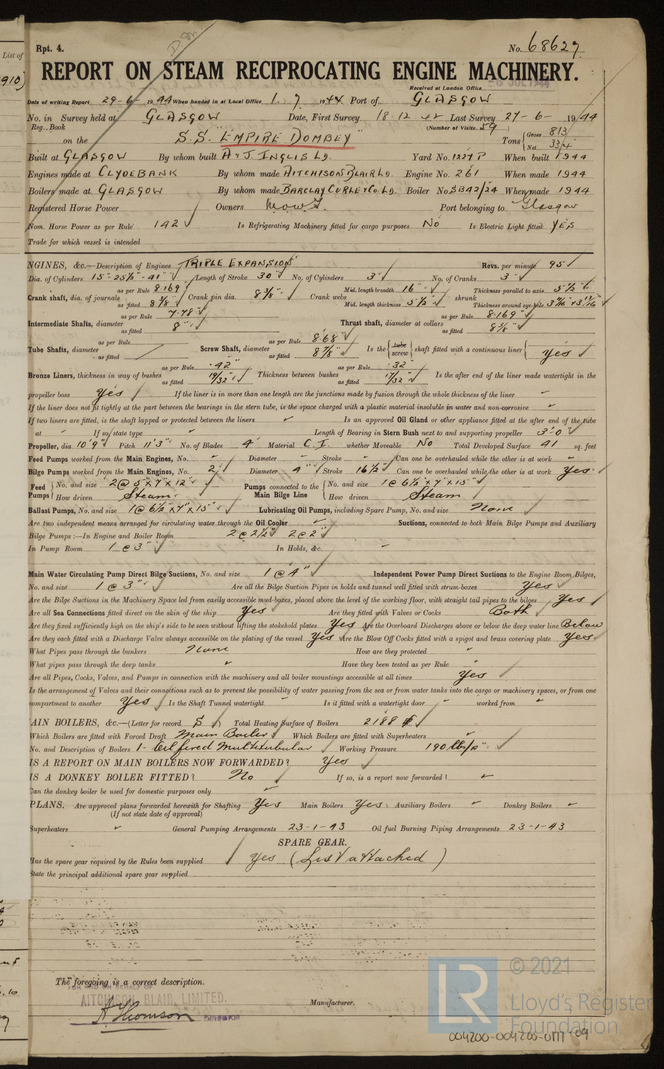 List of
Rpt. 4.
No. 68627
REPORT ON STEAM RECIPROCATING ENGINE MACHINERY.
Received at London Office
Date of writing Report 29-6- 1944 When handed in at Local Office 1.7 1944 Port of GLASGOW
No. in Survey held at GLASGOW Date, First Survey 18.12.42 Last Survey 27-6- 1944
Reg. Book (Number of Visits 59
on the S.S. "EMPIRE DOMBEY" Tons { Gross 813
Net 334
Built at GLASGOW By whom built A & J. INGLIS LD. Yard No. 1227P When built 1944
Engines made at CLYDEBANK By whom made AITCHISON BLAIR LD. Engine No. 261 When made 1944
Boilers made at GLASGOW By whom made BARCLAY CURLE & CO LD. Boiler No. SB42/24 When made 1944
Registered Horse Power Owners M.O.W.T. Port belonging to Glasgow
Nom. Horse Power as per Rule 142 Is Refrigerating Machinery fitted for cargo purposes No Is Electric Light fitted YES
Trade for which vessel is intended
NGINES, &c.—Description of Engines TRIPLE EXPANSION Revs. per minute 95
Dia. of Cylinders 15"-25½"-41" Length of Stroke 30" No. of Cylinders 3 No. of Cranks 3
Crank shaft, dia. of journals as per Rule 8.169 as fitted 8⅜" Crank pin dia. 8⅜" Crank webs Mid. length breadth 16" Mid. length thickness 5½" shrunk Thickness parallel to axis 5½" Thickness around eye-hole
Intermediate Shafts, diameter as per Rule 7.78" as fitted 8" Thrust shaft, diameter at collars as per Rule 8.169" as fitted
Tube Shafts, diameter as per Rule as fitted Screw Shaft, diameter as per Rule 8.68 as fitted 8⅞" Is the { tube screw } shaft fitted with a continuous liner { yes
Bronze Liners, thickness in way of bushes as per Rule .42" as fitted 19/32" Thickness between bushes as per Rule .32 as fitted 17/32" Is the after end of the liner made watertight in the
propeller boss yes If the liner is in more than one length are the junctions made by fusion through the whole thickness of the liner "
If the liner does not fit tightly at the part between the bearings in the stern tube, is the space charged with a plastic material insoluble in water and non-corrosive "
If two liners are fitted, is the shaft lapped or protected between the liners " Is an approved Oil Gland or other appliance fitted at the after end of the tube
at " If so, state type " Length of Bearing in Stern Bush next to and supporting propeller 3'-0"
Propeller, dia 10'9" Pitch 11'3" No. of Blades 4 Material C.I. whether Moveable No Total Developed Surface 41 sq. feet
Feed Pumps worked from the Main Engines, No. " Diameter " Stroke " Can one be overhauled while the other is at work "
Bilge Pumps worked from the Main Engines, No. 2 Diameter 4" Stroke 16½" Can one be overhauled while the other is at work Yes
Feed Pumps { No. and size 2 @ 5"x7"x12" How driven Steam Pumps connected to the Main Bilge Line { No. and size 1 @ 6½"x7"x15" How driven Steam
Ballast Pumps, No. and size 1 @ 6½"x7"x15" Lubricating Oil Pumps, including Spare Pump, No. and size None
Are two independent means arranged for circulating water through the Oil Cooler " Suctions, connected to both Main Bilge Pumps and Auxiliary
Bilge Pumps :—In Engine and Boiler Room 2 @ 2½" 2 @ 2"
In Pump Room 1 @ 3" In Holds, &c. "
Main Water Circulating Pump Direct Bilge Suctions, No. and size 1 @ 4" Independent Power Pump Direct Suctions to the Engine Room Bilges,
No. and size 1 @ 3" Are all the Bilge Suction Pipes in holds and tunnel well fitted with strum-boxes Yes
Are the Bilge Suctions in the Machinery Space led from easily accessible mud-boxes, placed above the level of the working floor, with straight tail pipes to the bilges Yes
Are all Sea Connections fitted direct on the skin of the ship Yes Are they fitted with Valves or Cocks Both
Are they fixed sufficiently high on the ship's side to be seen without lifting the stokehold plates Yes Are the Overboard Discharges above or below the deep water line Below
Are they each fitted with a Discharge Valve always accessible on the plating of the vessel Yes Are the Blow Off Cocks fitted with a spigot and brass covering plate Yes
What Pipes pass through the bunkers None How are they protected "
What pipes pass through the deep tanks " Have they been tested as per Rule "
Are all Pipes, Cocks, Valves, and Pumps in connection with the machinery and all boiler mountings accessible at all times Yes
Is the arrangement of Valves and their connections such as to prevent the possibility of water passing from the sea or from water tanks into the cargo or machinery spaces, or from one
compartment to another Yes Is the Shaft Tunnel watertight " Is it fitted with a watertight door " worked from "
AIN BOILERS, &c.—(Letter for record S Total Heating Surface of Boilers 2188
Which Boilers are fitted with Forced Draft Main Boiler Which Boilers are fitted with Superheaters "
No. and Description of Boilers 1- Oil fired Multitubular Working Pressure 190 lb/□"
IS A REPORT ON MAIN BOILERS NOW FORWARDED? Yes
IS A DONKEY BOILER FITTED? No If so, is a report now forwarded? "
Can the donkey boiler be used for domestic purposes only "
PLANS. Are approved plans forwarded herewith for Shafting Yes Main Boilers Yes Auxiliary Boilers " Donkey Boilers "
(If not state date of approval)
Superheaters " General Pumping Arrangements 23-1-43 Oil fuel Burning Piping Arrangements 23-1-43
SPARE GEAR.
Has the spare gear required by the Rules been supplied Yes (List attached)
State the principal additional spare gear supplied
The foregoing is a correct description.
AITCHISON BLAIR, LIMITED.
A Thomson
Manufacturer.
LR © 2021
Lloyd's Register
Foundation
004200-004205-0117